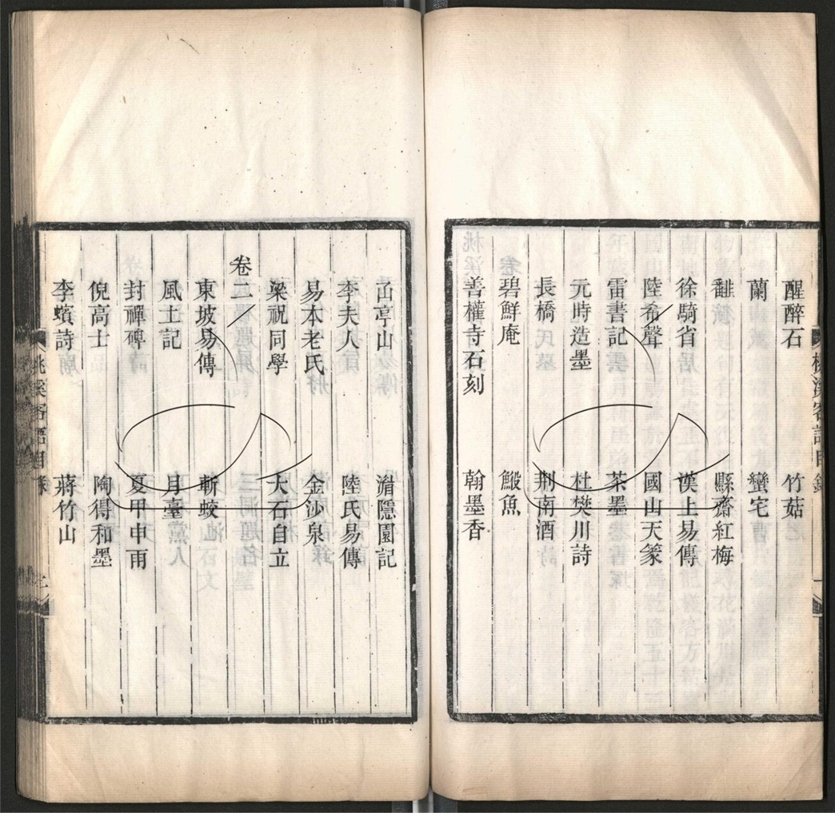 醒醉石　竹菇
蘭　蠻宅
　縣齋紅梅
徐騎省　漢上易傳
陸希聲　國山天篆
雷書記　茶墨
元時造墨　杜樊川詩
長橋　荆南酒
碧鮮庵　鰕魚
善權寺石刻　翰墨香
亭山　湄隱園記
李夫人　陸氏易傳
易本老氏　金沙泉
梁祝同學　大石自立
卷二
東坡易傳　斬蛟
風土記　月臺
封禪碑　夏甲申雨
倪高士　陶得和墨
李蠙詩　蔣竹山
桃溪客語目錄